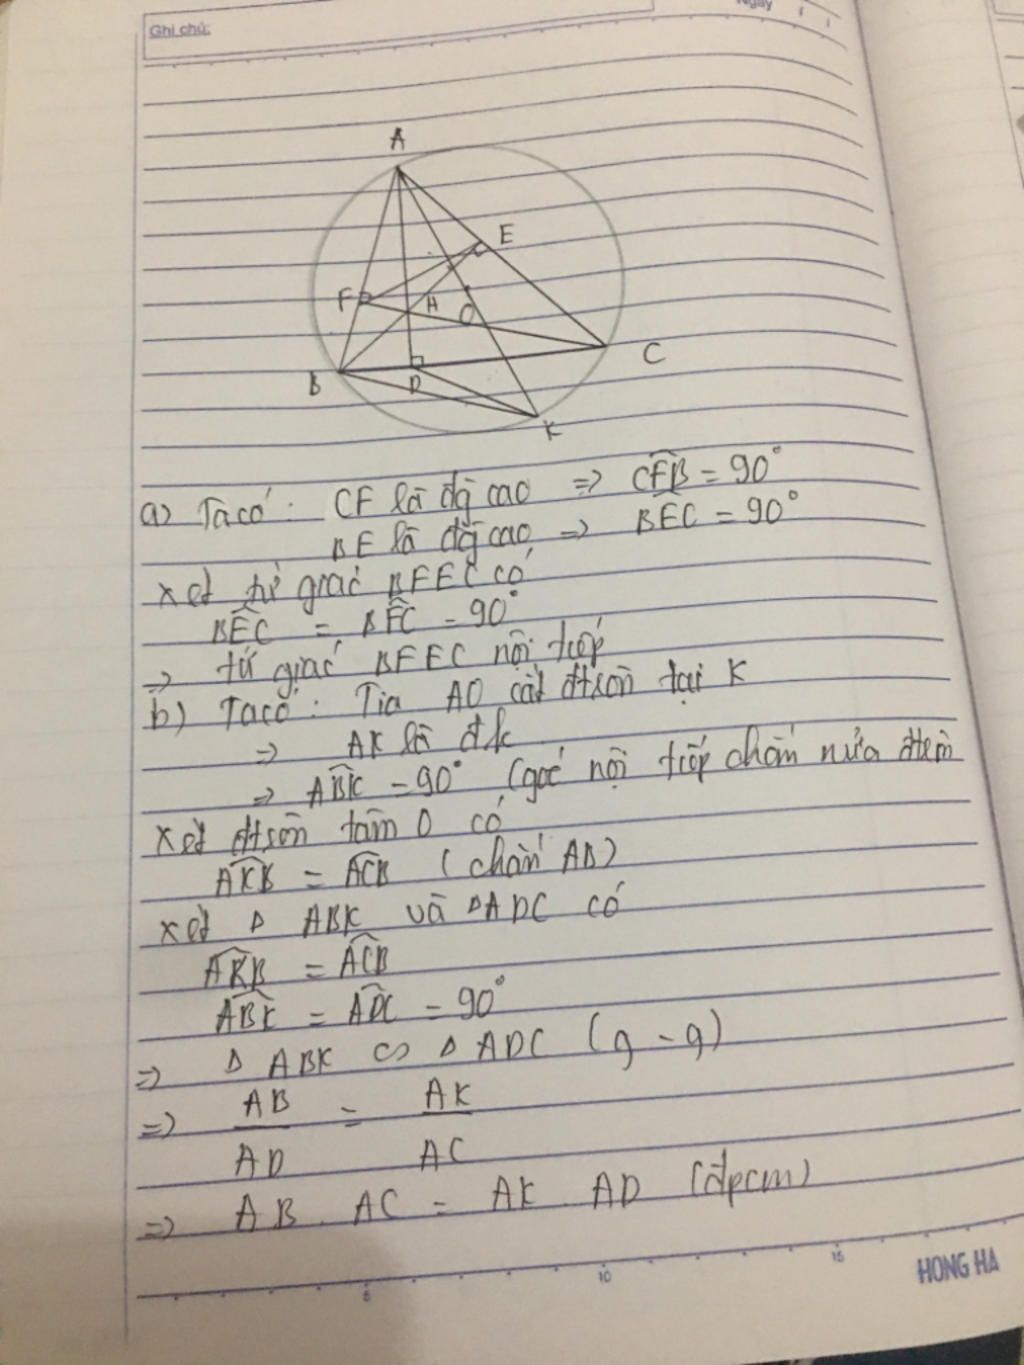 Ghi chú:
Ngày
A
E
F
H
O
B
D
C
K
a) Ta có: CF là đg cao => CFB = 90°
BE là đg cao => BEC = 90°
xét tứ giác BFEC có
BEC = BFC = 90°
=> tứ giác BFEC nội tiếp
b) Ta có: Tia AO cắt đtròn tại K
=> AK là đk
=> ABK = 90° (góc nội tiếp chắn nửa đtròn
xét đtròn tâm O có
AKB = ACB (chắn AB)
xét Δ ABK và ΔADC có
AKB = ACB
ABK = ADC = 90°
=> Δ ABK ∽ Δ ADC (g-g)
=> AB = AK
AD AC
=> AB . AC = AK . AD (đpcm)
5 10 15
HONG HA